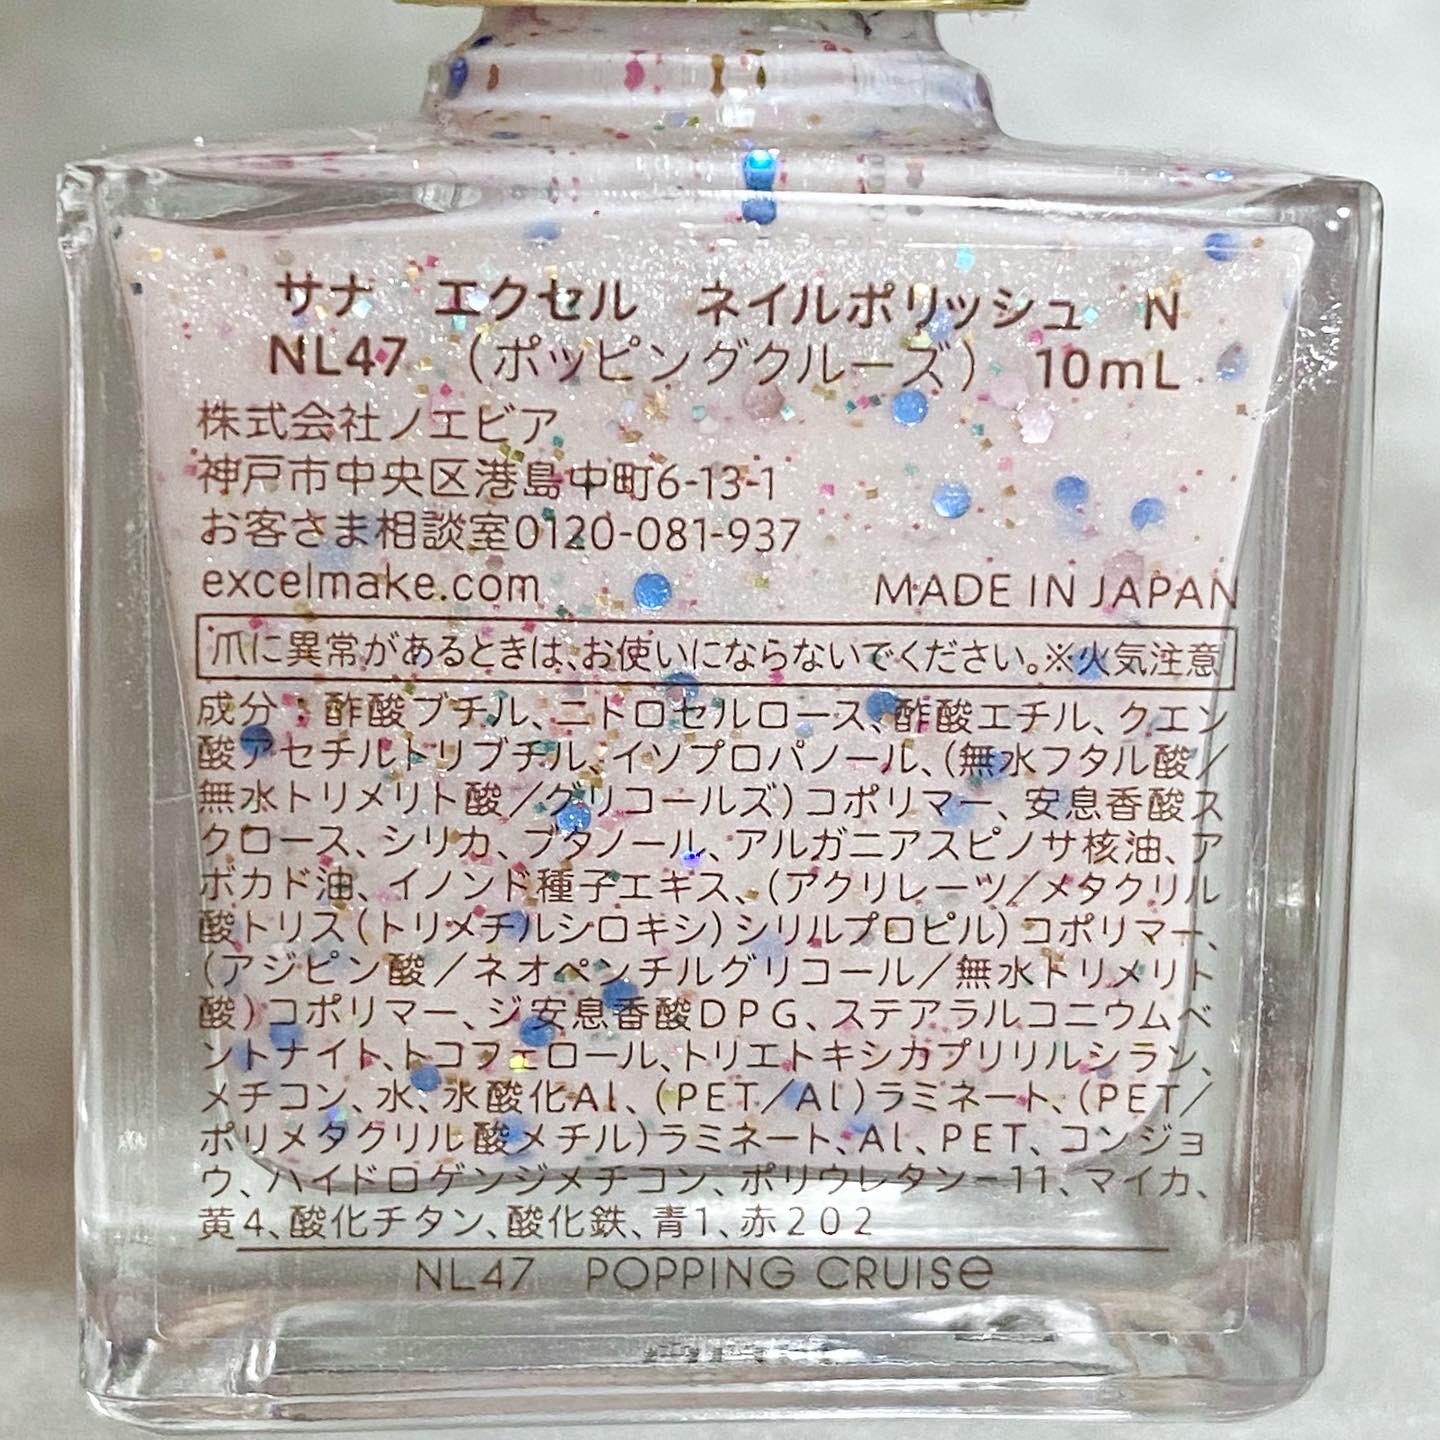 サナ　エクセル　ネイルポリッシュ　N
NL47　（ポッピングクルーズ）　10mL
株式会社ノエビア
神戸市中央区港島中町6-13-1
お客さま相談室0120-081-937
excelmake.com　MADE IN JAPAN
爪に異常があるときは、お使いにならないでください。※火気注意
成分：酢酸ブチル、ニトロセルロース、酢酸エチル、クエン
酸アセチルトリブチル、イソプロパノール、(無水フタル酸／
無水トリメリト酸／グリコールズ)コポリマー、安息香酸ス
クロース、シリカ、ブタノール、アルガニアスピノサ核油、ア
ボカド油、イノンド種子エキス、(アクリレーツ／メタクリル
酸トリス(トリメチルシロキシ)シリルプロピル)コポリマー、
(アジピン酸／ネオペンチルグリコール／無水トリメリト
酸)コポリマー、ジ安息香酸DPG、ステアラルコニウムベ
ントナイト、トコフェロール、トリエトキシカプリリルシラン、
メチコン、水、水酸化Al、(PET／Al)ラミネート、(PET／
ポリメタクリル酸メチル)ラミネート、Al、PET、コンジョ
ウ、ハイドロゲンジメチコン、ポリウレタン－11、マイカ、
黄4、酸化チタン、酸化鉄、青1、赤202
NL47　POPPING CRUISe